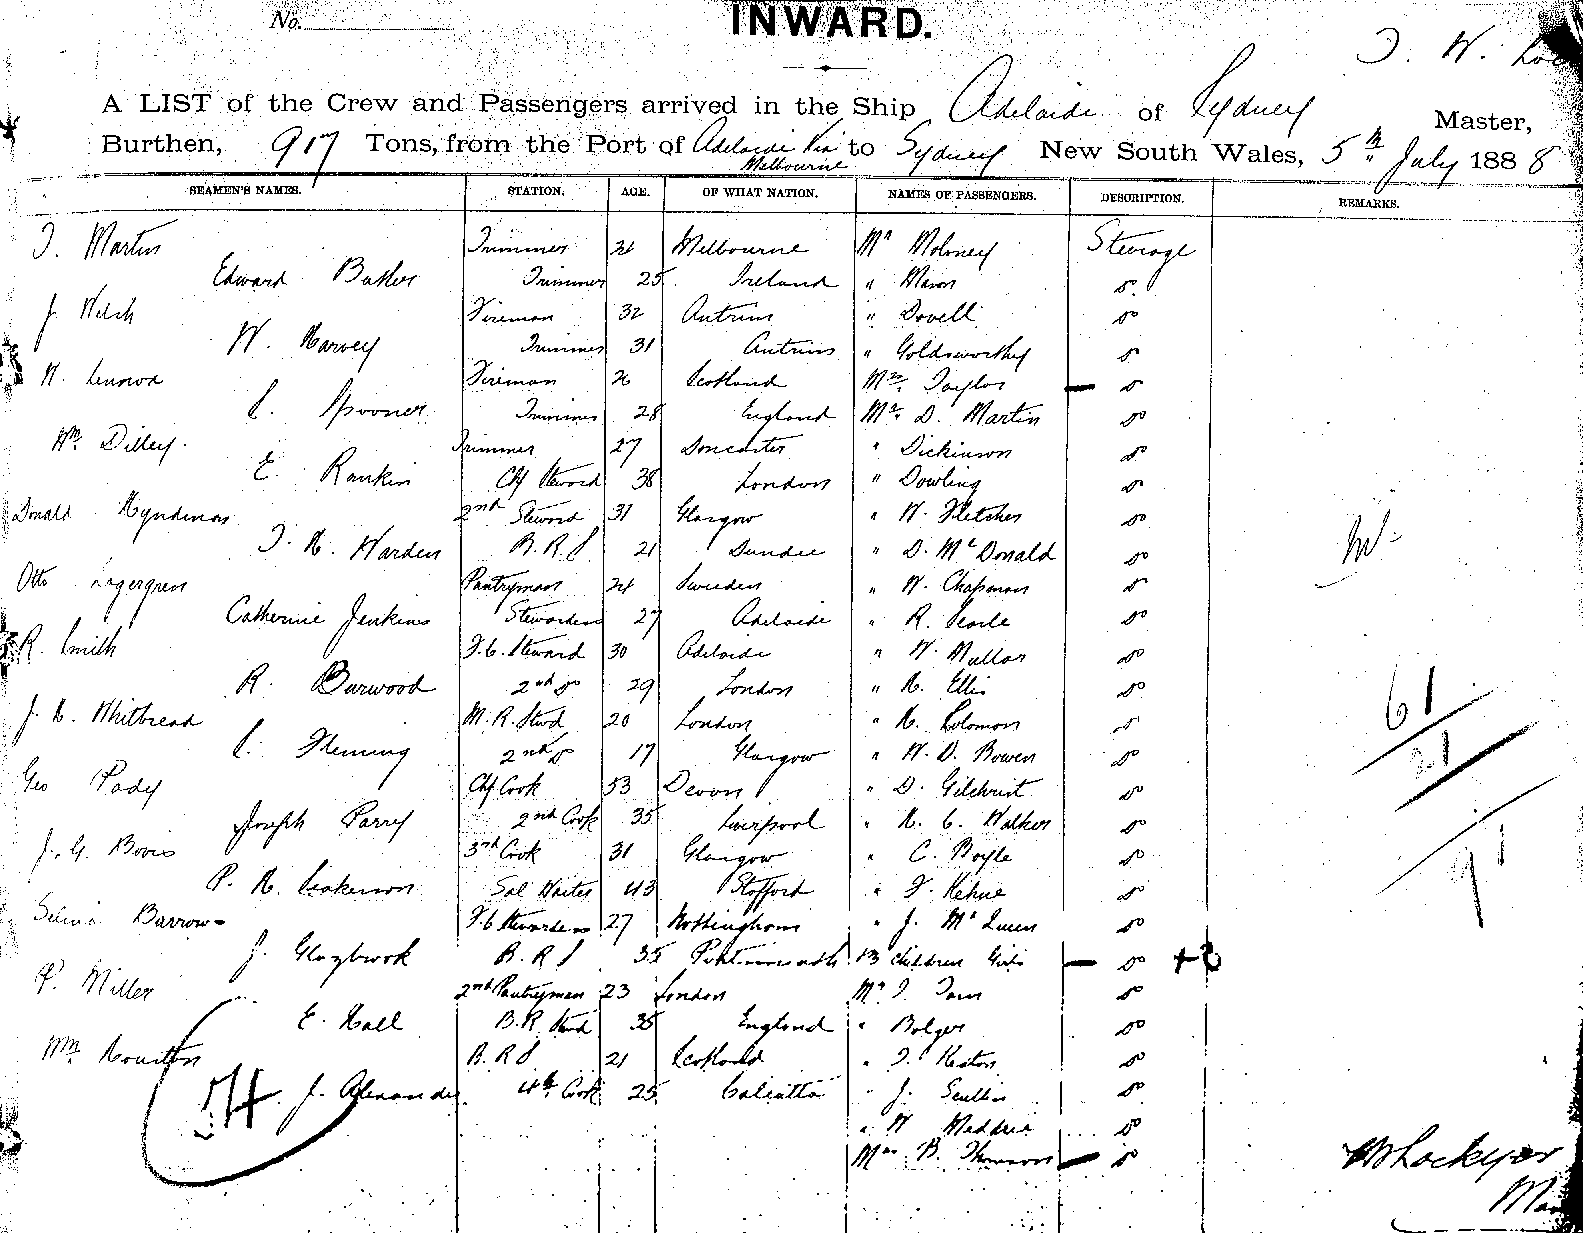 No.
INWARD.
A LIST of the Crew and Passengers arrived in the Ship Adelaide of Sydney
Master,
Burthen, 917 Tons, from the Port of Adelaide Via Melbourne to Sydney New South Wales, 5th July 1888
SEAMEN'S NAMES. STATION. AGE. OF WHAT NATION. NAMES OF PASSENGERS. DESCRIPTION. REMARKS.
Martin Trimmer Melbourne Mr Moloney Steerage
Edward Butler Trimmer 25 Ireland " Mason do
J. Welch Fireman 32 Antrim " Dovell do
W. Harvey Trimmer 31 Antrim " Goldsworthy do
Fireman Scotland Mrs. Taylor do
C. Spooner Trimmer 28 England Mr. D. Martin do
Wm. Dilley Trimmer 27 Doncaster " Dickinson do
E. Rankin Chf Steward 38 London " Dowling do
Donald 2nd Steward 31 Glasgow " W. Fletcher do
Warden B. R. S 21 Dundee " D. McDonald do
Otto Lagergren Pantryman 24 Sweden " W. Chapman do
Catherine Jenkins Stewardess 27 Adelaide " R. Searle do
R. Smith F.C. Steward 30 Adelaide " W. Mullar do
R. Burwood 2nd do 29 London " H. Ellis do
J. H. Whitbread M. R. Stwd 20 London " H. Solomon do
C. Fleming 2nd do 17 Glasgow " W. D. Bowen do
Geo Pady Chf Cook 53 Devon " D. Gilchrist do
Joseph Parry 2nd Cook 35 Liverpool " H. C. Walker do
J. G. Bovis 3rd Cook 31 Glasgow " C. Boyle do
P. H. Sal Waiter 43 Stafford " F. Kehne do
Barrow F.C. Stewardess 27 Nottingham " J. do
J. Glazbrook B. R. S 35 Portsmouth 13 Children Girls do
P. Miller 2nd Pantryman 23 London Mr do
E. Hall B. R. Stwd 35 England " Bolger do
Wm. Houston B. R. S. 21 Scotland " do
J. Alexander 4th Cook 25 Calcutta " J. Scullin do
" W do
Mrs B. Thomson do
61
21
91
54
Lockyer